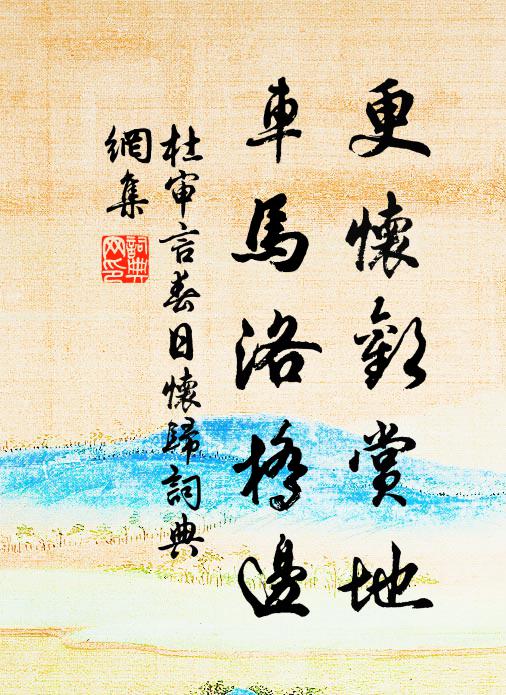 更懷歡賞地
車馬洛橋邊
杜审言春日懷歸詞典
網集
詞典
网印